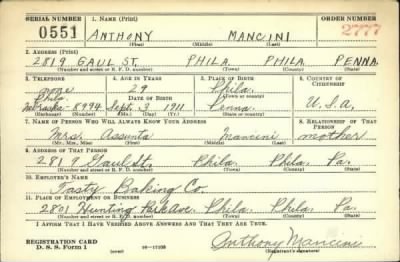 SERIAL NUMBER 1. NAME (Print) ORDER NUMBER
0551 ANTHONY MANCINI 2777
(First) (Middle) (Last)
2. ADDRESS (Print)
2819 GAUL ST. PHILA. PHILA. PENNA.
(Number and street or R. F. D. number) (Town) (County) (State)
3. TELEPHONE 4. AGE IN YEARS 5. PLACE OF BIRTH 6. COUNTRY OF CITIZENSHIP
none 29 Phila.
Phila. DATE OF BIRTH (Town or county)
8994 Sept. 3 1911 Penna. U.S.A.
(Exchange) (Number) (Mo.) (Day) (Yr.) (State or country)
7. NAME OF PERSON WHO WILL ALWAYS KNOW YOUR ADDRESS 8. RELATIONSHIP OF THAT PERSON
Mrs. Assunta Mancini mother
(Mr., Mrs., Miss) (First) (Middle) (Last)
9. ADDRESS OF THAT PERSON
2819 Gaul St. Phila. Phila. Pa.
(Number and street or R. F. D. number) (Town) (County) (State)
10. EMPLOYER'S NAME
Tasty Baking Co.
11. PLACE OF EMPLOYMENT OR BUSINESS
2801 Hunting Park Ave. Phila. Phila. Pa.
(Number and street or R. F. D. number) (Town) (County) (State)
I AFFIRM THAT I HAVE VERIFIED ABOVE ANSWERS AND THAT THEY ARE TRUE.
REGISTRATION CARD
D. S. S. Form 1 (over) 16—17105 Anthony Mancini
(Registrant's signature)